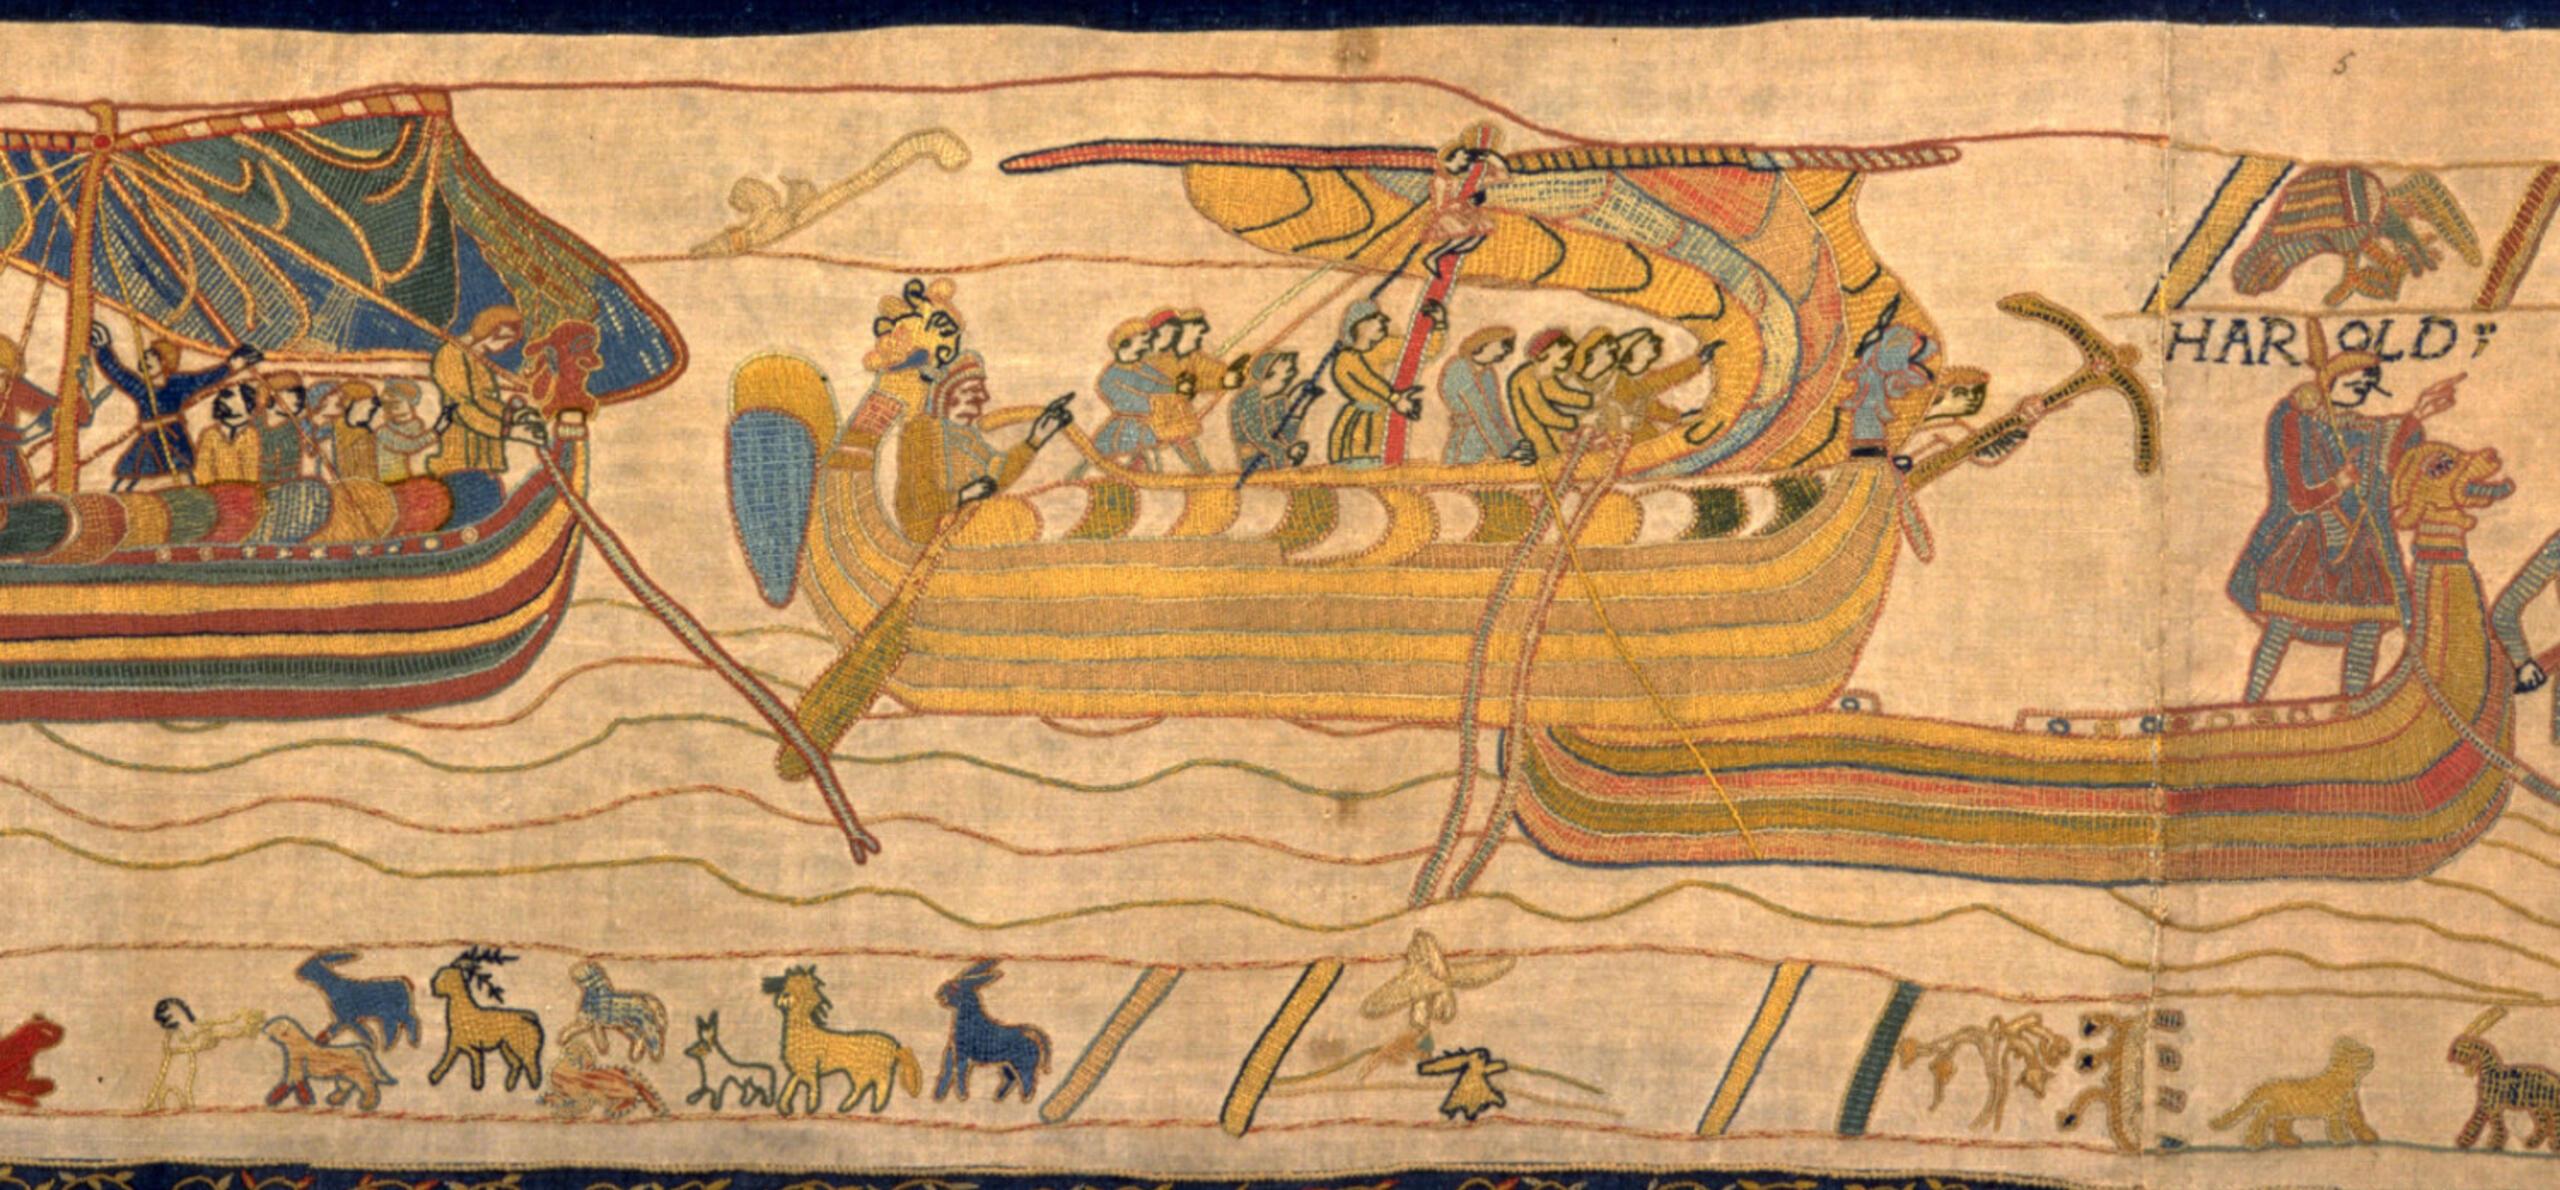 5
HAROLD: